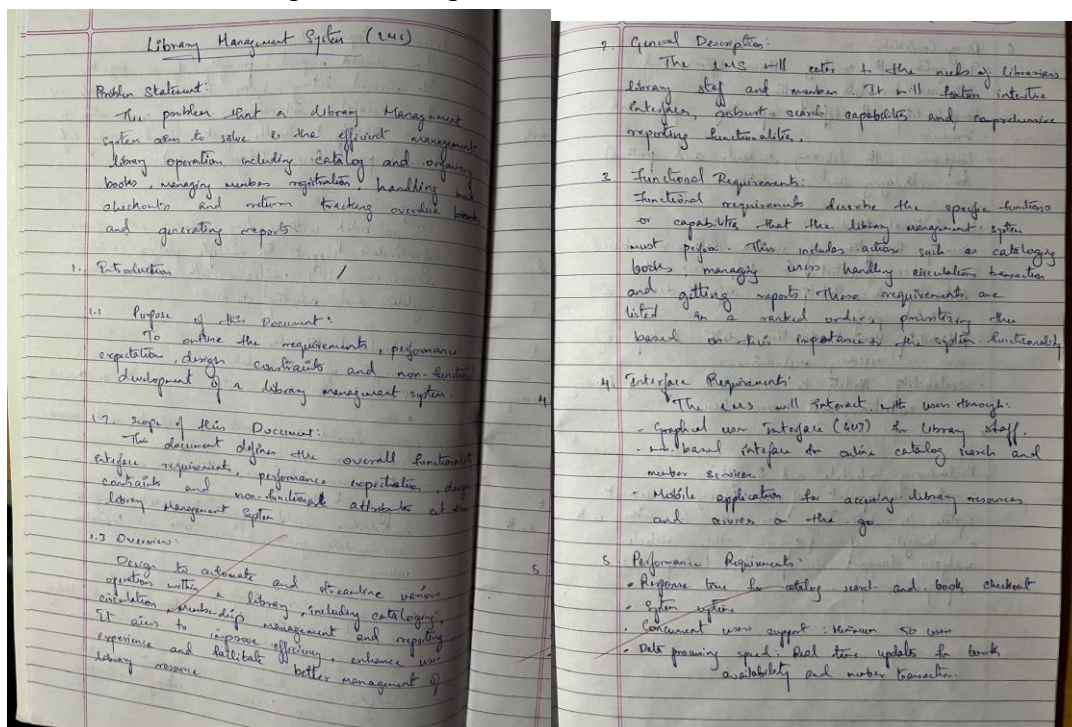 Library Management System (LMS)
Problem Statement:
The problem that a Library Management
system aims to solve is the efficient management
library operation including catalog and organising
books, managing member registration, handling book
checkouts and return tracking overdue books
and generating reports
1. Introduction
1.1 Purpose of this Document:
To outline the requirements, performance
expectation, design constraints and non-function
development of a library management system.
1.2. Scope of this Document:
The document defines the overall functionality
interface requirement, performance expectation, design
contraints and non-functional attributes
Library Management System.
1.3 Overview:
Design to automate and streamline various
operations within a library, including cataloging,
circulation, membership management and reporting.
It aims to improve efficiency, enhance user
experience and facilitate better management of
library resource
2. General Description:
The LMS will cater to the needs of librarians
library staff and member. It will feature intuitive
interfaces, robust search, capabilities and comprehensive
reporting functionalities.
3. Functional Requirements:
Functional requirements describe the specific functions
or capabilities that the library management system
must perform. This includes action such as cataloging
books, managing users handling circulation transaction
and getting reports, These requirements are
listed in a ranked orders, prioritizing them
based on their importance the system functionality
4 Interface Requirements:
The LMS will interact with users through:
- Graphical user Interface (GUI) for library staff.
- based interface for online catalog search and
member services.
- Mobile application for accessing library resources
and on the go
5 Performance Requirements:
• Response time for catalog search and book checkout
• System uptime
• Concurrent users support: Minimum 50 users
• Data processing speed: Real time updates for book
availability and member transaction.